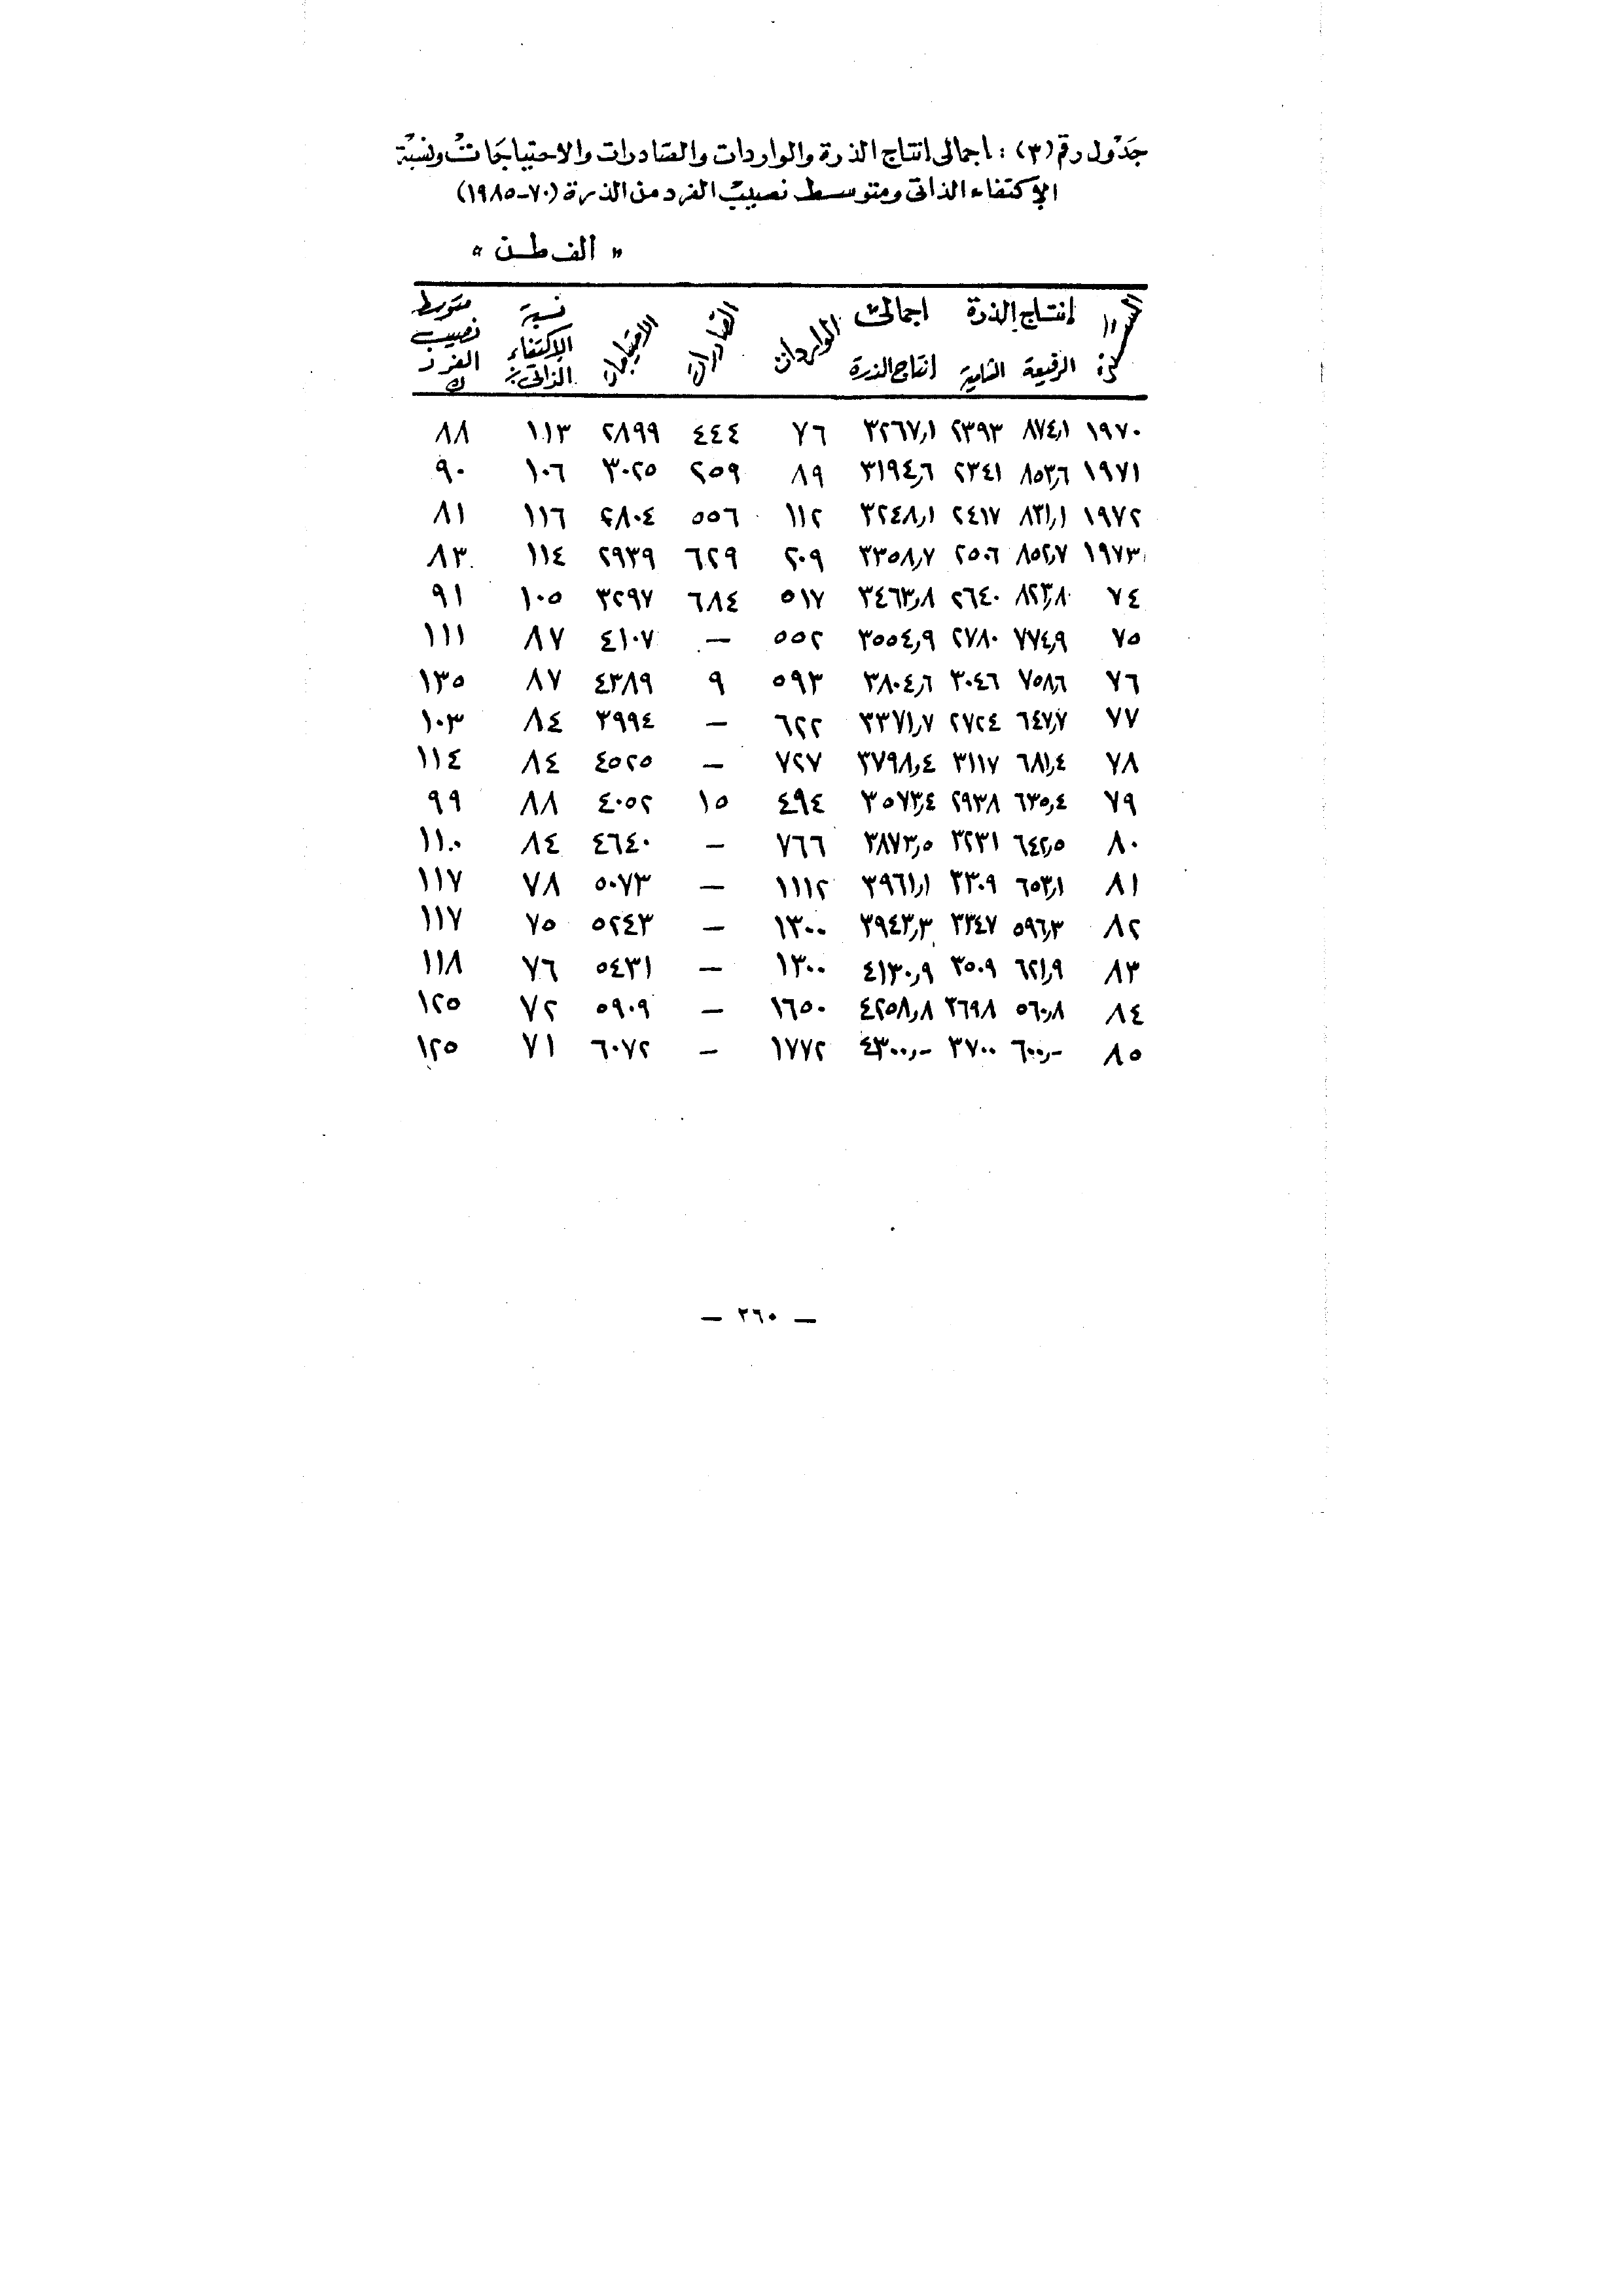 جدول رقم (٣) : اجمالى انتاج الذرة والواردات والصادرات والاحتياجات ونسبة
الإكتفاء الذاتى ومتوسط نصيب الفرد من الذرة (٧٠-١٩٨٥)
" الف طن "
السنة إنتاج الذرة اجمالى الواردات الصادرات الاحتياجات نسبة متوسط
الإكتفاء نصيب
الرفيعة الشامية انتاج الذرة الذاتى٪ الفرد
ك
١٩٧٠ ٨٧٤,١ ٢٣٩٣ ٣٢٦٧,١ ٧٦ ٤٤٤ ٢٨٩٩ ١١٣ ٨٨
١٩٧١ ٨٥٣,٦ ٢٣٤١ ٣١٩٤,٦ ٨٩ ٢٥٩ ٣٠٢٥ ١٠٦ ٩٠
١٩٧٢ ٨٣١,١ ٢٤١٧ ٣٢٤٨,١ ١١٢ ٥٥٦ ٢٨٠٤ ١١٦ ٨١
١٩٧٣ ٨٥٢,٧ ٢٥٠٦ ٣٣٥٨,٧ ٢٠٩ ٦٢٩ ٢٩٣٩ ١١٤ ٨٣
٧٤ ٨٢٣,٨ ٢٦٤٠ ٣٤٦٣,٨ ٥١٧ ٦٨٤ ٣٢٩٧ ١٠٥ ٩١
٧٥ ٧٧٤,٩ ٢٧٨٠ ٣٥٥٤,٩ ٥٥٢ — ٤١٠٧ ٨٧ ١١١
٧٦ ٧٥٨,٦ ٣٠٤٦ ٣٨٠٤,٦ ٥٩٣ ٩ ٤٣٨٩ ٨٧ ١٣٥
٧٧ ٦٤٧,٧ ٢٧٢٤ ٣٣٧١,٧ ٦٢٢ — ٣٩٩٤ ٨٤ ١٠٣
٧٨ ٦٨١,٤ ٣١١٧ ٣٧٩٨,٤ ٧٢٧ — ٤٥٢٥ ٨٤ ١١٤
٧٩ ٦٣٥,٤ ٢٩٣٨ ٣٥٧٣,٤ ٤٩٤ ١٥ ٤٠٥٢ ٨٨ ٩٩
٨٠ ٦٤٢,٥ ٣٢٣١ ٣٨٧٣,٥ ٧٦٦ — ٤٦٤٠ ٨٤ ١١٠
٨١ ٦٥٣,١ ٣٣٠٩ ٣٩٦١,١ ١١١٢ — ٥٠٧٣ ٧٨ ١١٧
٨٢ ٥٩٦,٣ ٣٣٤٧ ٣٩٤٣,٣ ١٣٠٠ — ٥٢٤٣ ٧٥ ١١٧
٨٣ ٦٢١,٩ ٣٥٠٩ ٤١٣٠,٩ ١٣٠٠ — ٥٤٣١ ٧٦ ١١٨
٨٤ ٥٦٠,٨ ٣٦٩٨ ٤٢٥٨,٨ ١٦٥٠ — ٥٩٠٩ ٧٢ ١٢٥
٨٥ ٦٠٠,- ٣٧٠٠ ٤٣٠٠,- ١٧٧٢ — ٦٠٧٢ ٧١ ١٢٥
— ٢٦٠ —